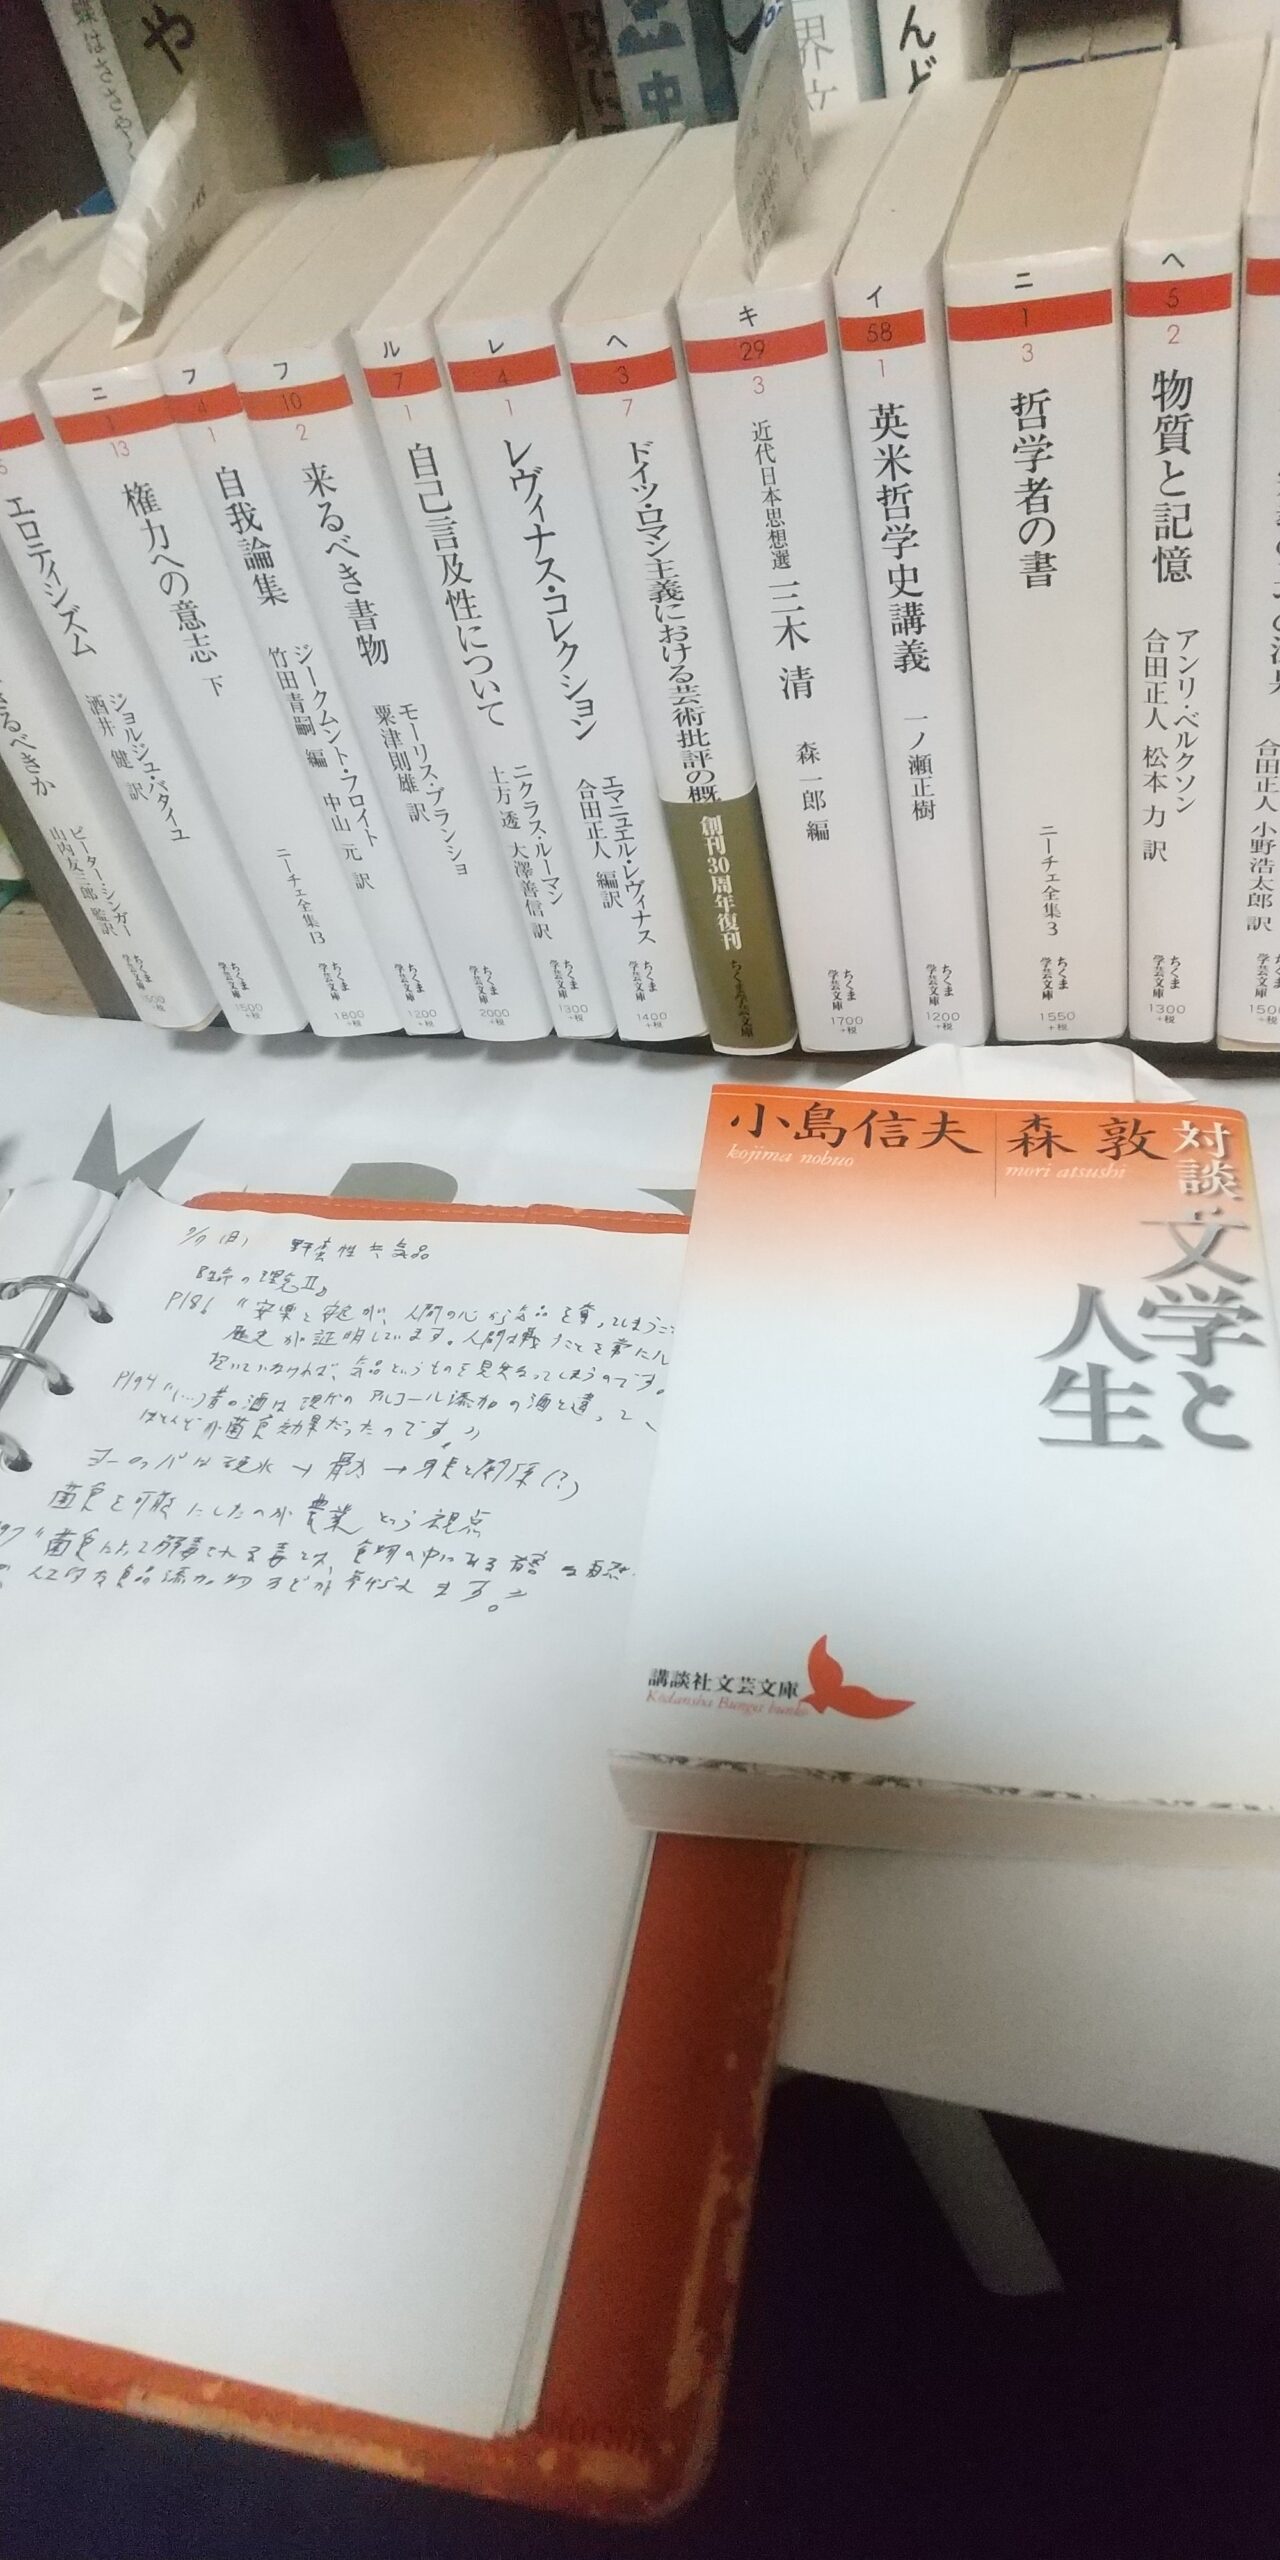 蝶はささやく
や
中
世界文
んど
エロティシズム
ジョルジュ・バタイユ
酒井 健 訳
ちくま学芸文庫
1500+税
るべきか
ピーター・シンガー
山内友三郎 監訳
ニ
1
13
権力への意志 下
ニーチェ全集13
ちくま学芸文庫
1500+税
フ
4
1
自我論集
ジークムント・フロイト
竹田青嗣 編 中山 元 訳
ちくま学芸文庫
1800+税
フ
10
2
来るべき書物
モーリス・ブランショ
粟津則雄 訳
ちくま学芸文庫
1200+税
ル
7
1
自己言及性について
ニクラス・ルーマン
土方 透 大澤善信 訳
ちくま学芸文庫
2000+税
レ
4
1
レヴィナス・コレクション
エマニュエル・レヴィナス
合田正人 編訳
ちくま学芸文庫
1300+税
ヘ
3
7
ドイツ・ロマン主義における芸術批評の概
創刊30周年復刊
ちくま学芸文庫
1400+税
キ
29
3
近代日本思想選 三木 清
森 一郎 編
ちくま学芸文庫
1700+税
イ
58
1
英米哲学史講義
一ノ瀬正樹
ちくま学芸文庫
1200+税
ニ
1
3
哲学者の書
ニーチェ全集3
ちくま学芸文庫
1550+税
ヘ
5
2
物質と記憶
アンリ・ベルクソン
合田正人 松本 力 訳
ちくま学芸文庫
1300+税
合田正人 小野浩太郎 訳
小島信夫
kojima nobuo
森 敦
mori atsushi
対談・文学と
人生
講談社文芸文庫
Kōdansha Bungei bunko
(日) 野蛮性と気品
P186 "安楽と安定が、人間の心から気品を奪ってしまうこ
歴史が証明しています。人間は戦うことを常に
抱いていなければ、気品というものを見失なってしまうのです。
P194 "(…)昔の酒は現代のアルコール添加の酒と違って、
ほとんどが菌食効果だったのです。"
ヨーロッパは硬水→骨太→身長と関係(?)
菌食を可能にしたのが農業という視点
97 "菌食によって解毒される毒とは、食物の中にある
人工的な食品添加物などが挙げられます。"